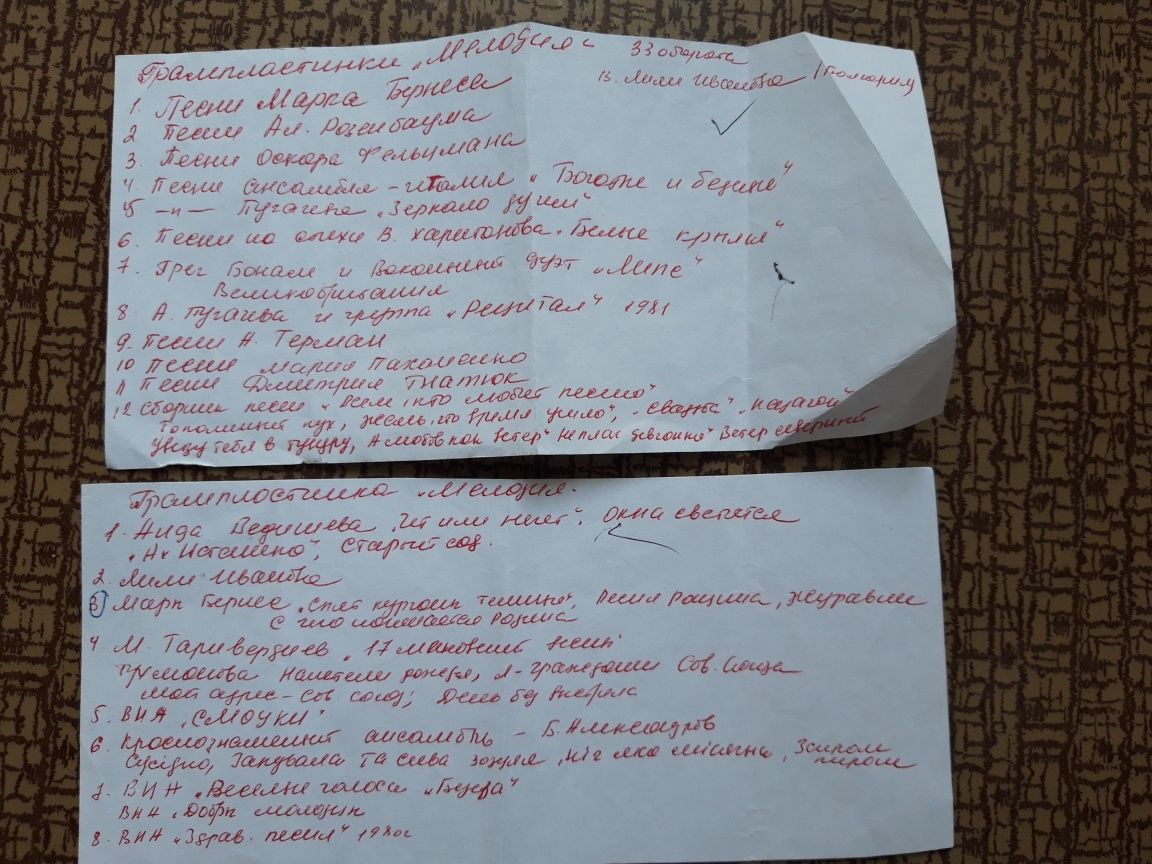 Грампластинки „Мелодия" 33 оборота
В. Лили Иванова /Болгария/
1. Песни Марка Бернеса
2 Песни Ал. Розенбаума
3. Песни Оскара Фельцмана
4. Песни ансамбля - Италия „Богатые и бедные"
5 -п- Пугачева „Зеркало души"
6. Песни на стихи В. Харитонова „Белые крылья"
7. Грег Бонам и Вокальный дуэт „Липс"
Великобритания
8. А. Пугачева и группа „Рецитал" 1981
9. Песни А. Герман
10 Песни Мария Пахоменко
11 Песни Дмитрия Гнатюк
12 Сборник песен „Всем, кто любит песню"
Тополиный пух, Жаль, что время ушло", „Свадьба"
Увезу тебя в тундру, А любовь как ветер" Не плачь девчонка" Ветер северный
Грампластинка „Мелодия".
1. Аида Ведищева „Чет или нечет", Окна светятся
Старый сад.
2. Лили Иванова
3) Марк Бернес „Спят курганы темные", Песня Рощина, Журавли
С чего начинается родина
4 М. Таривердиев „17 мгновений весны"
я - гражданин Сов. Союза
Мой адрес - Сов. союз,
5. ВИА „Смоуки"
6 Краснознаменный ансамбль - Б. Александров
Сусідко, Ніч яка місячна,
7. ВИА „Веселые голоса
ВИА „Добры молодцы
8. ВИА „Здрав. песня" 1980г